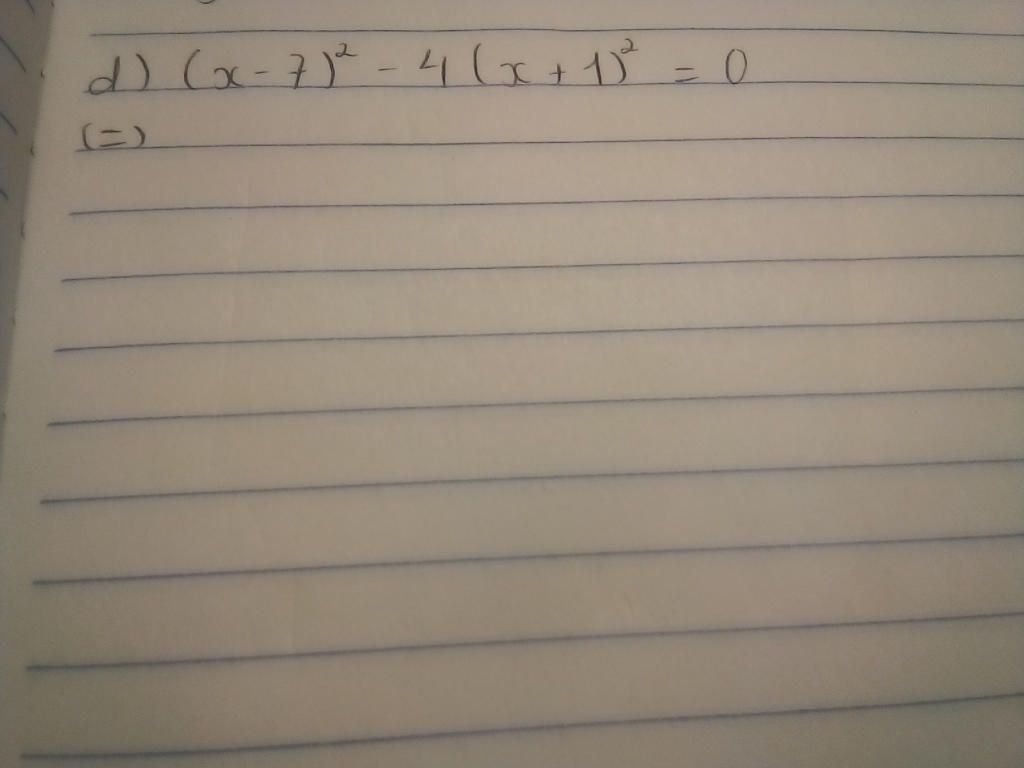 d) (x-7)² - 4(x+1)² = 0
(=)